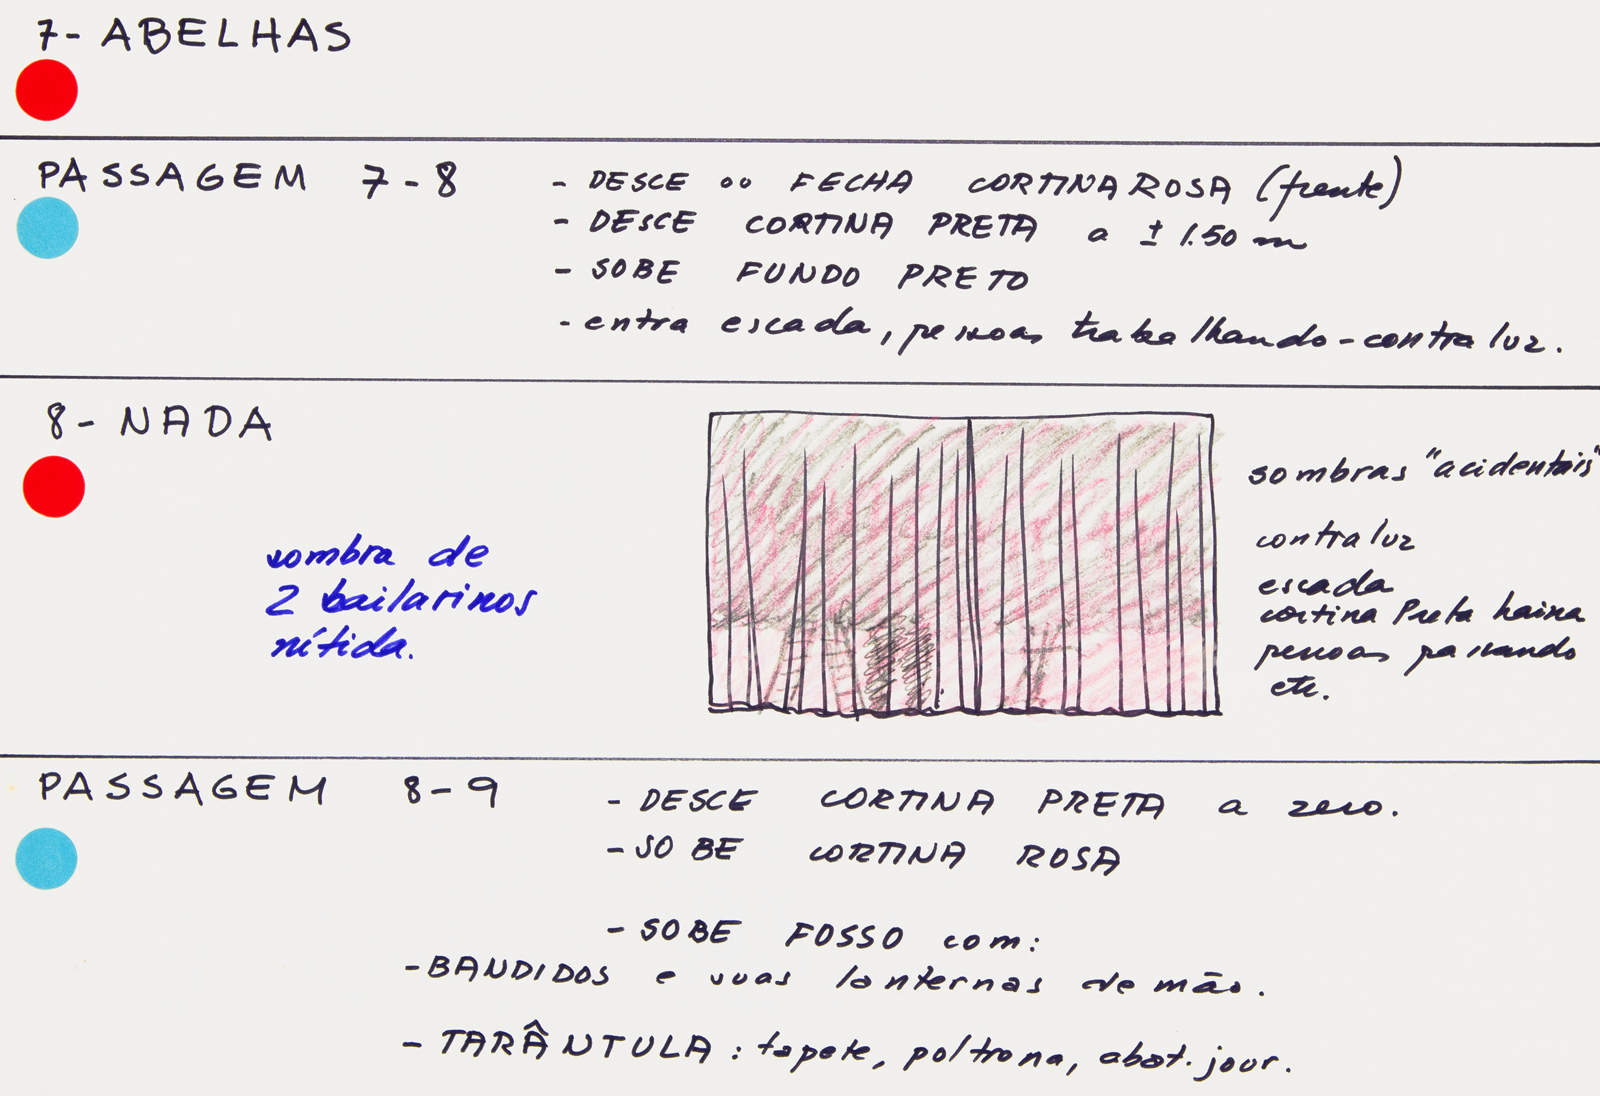 7- ABELHAS
PASSAGEM 7-8
- DESCE ou FECHA CORTINA ROSA (frente)
- DESCE CORTINA PRETA a ± 1.50 m
- SOBE FUNDO PRETO
- entra escada, pessoas trabalhando - contra luz.
8- NADA
sombra de
2 bailarinos
nítida.
sombras "acidentais"
contra luz
escada
cortina Preta baixa
pessoas passando
etc.
PASSAGEM 8-9
- DESCE CORTINA PRETA a zero.
- SOBE CORTINA ROSA
- SOBE FOSSO com:
- BANDIDOS e suas lanternas de mão.
- TARÂNTULA: tapete, poltrona, abat.jour.